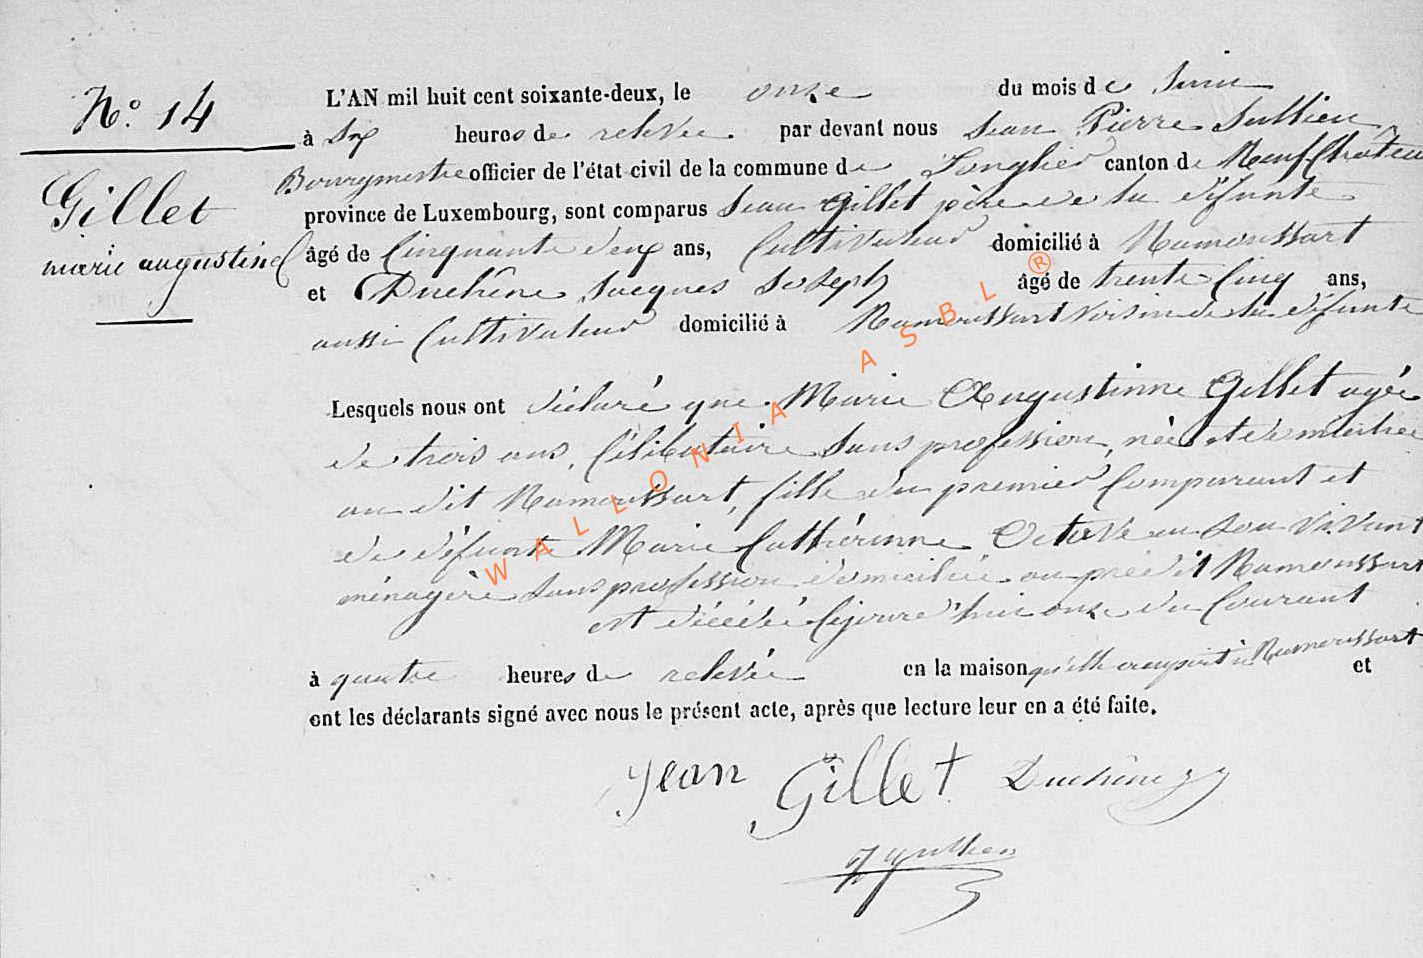 N° 14
Gillet
marie augustine
L'AN mil huit cent soixante-deux, le onze du mois de Juin
à Six heures de relevée. par devant nous Jean Pierre
Bourgmestre officier de l'état civil de la commune de Longlier canton de Neufchâteau
province de Luxembourg, sont comparus Jean Gillet père de la défunte
âgé de Cinquante deux ans, Cultivateur domicilié à Namoussart
et Duchêne Jacques Joseph âgé de trente Cinq ans,
aussi Cultivateur domicilié à Namoussart voisin de la défunte
Lesquels nous ont déclaré que Marie Augustinne Gillet agée
de trois ans, Célibataire sans profession, née et domiciliée
au dit Namoussart, fille du premier Comparant et
de défunte Marie Cathérinne Octave en son vivant
ménagère sans profession domiciliée au prédit Namoussart
est décédée cejourd'hui onze du Courant
à quatre heures de relevée en la maison qu'elle occupait à Namoussart et
ont les déclarants signé avec nous le présent acte, après que lecture leur en a été faite.
Jean Gillet Duchêne JJ
WALLONIA ASBL ®